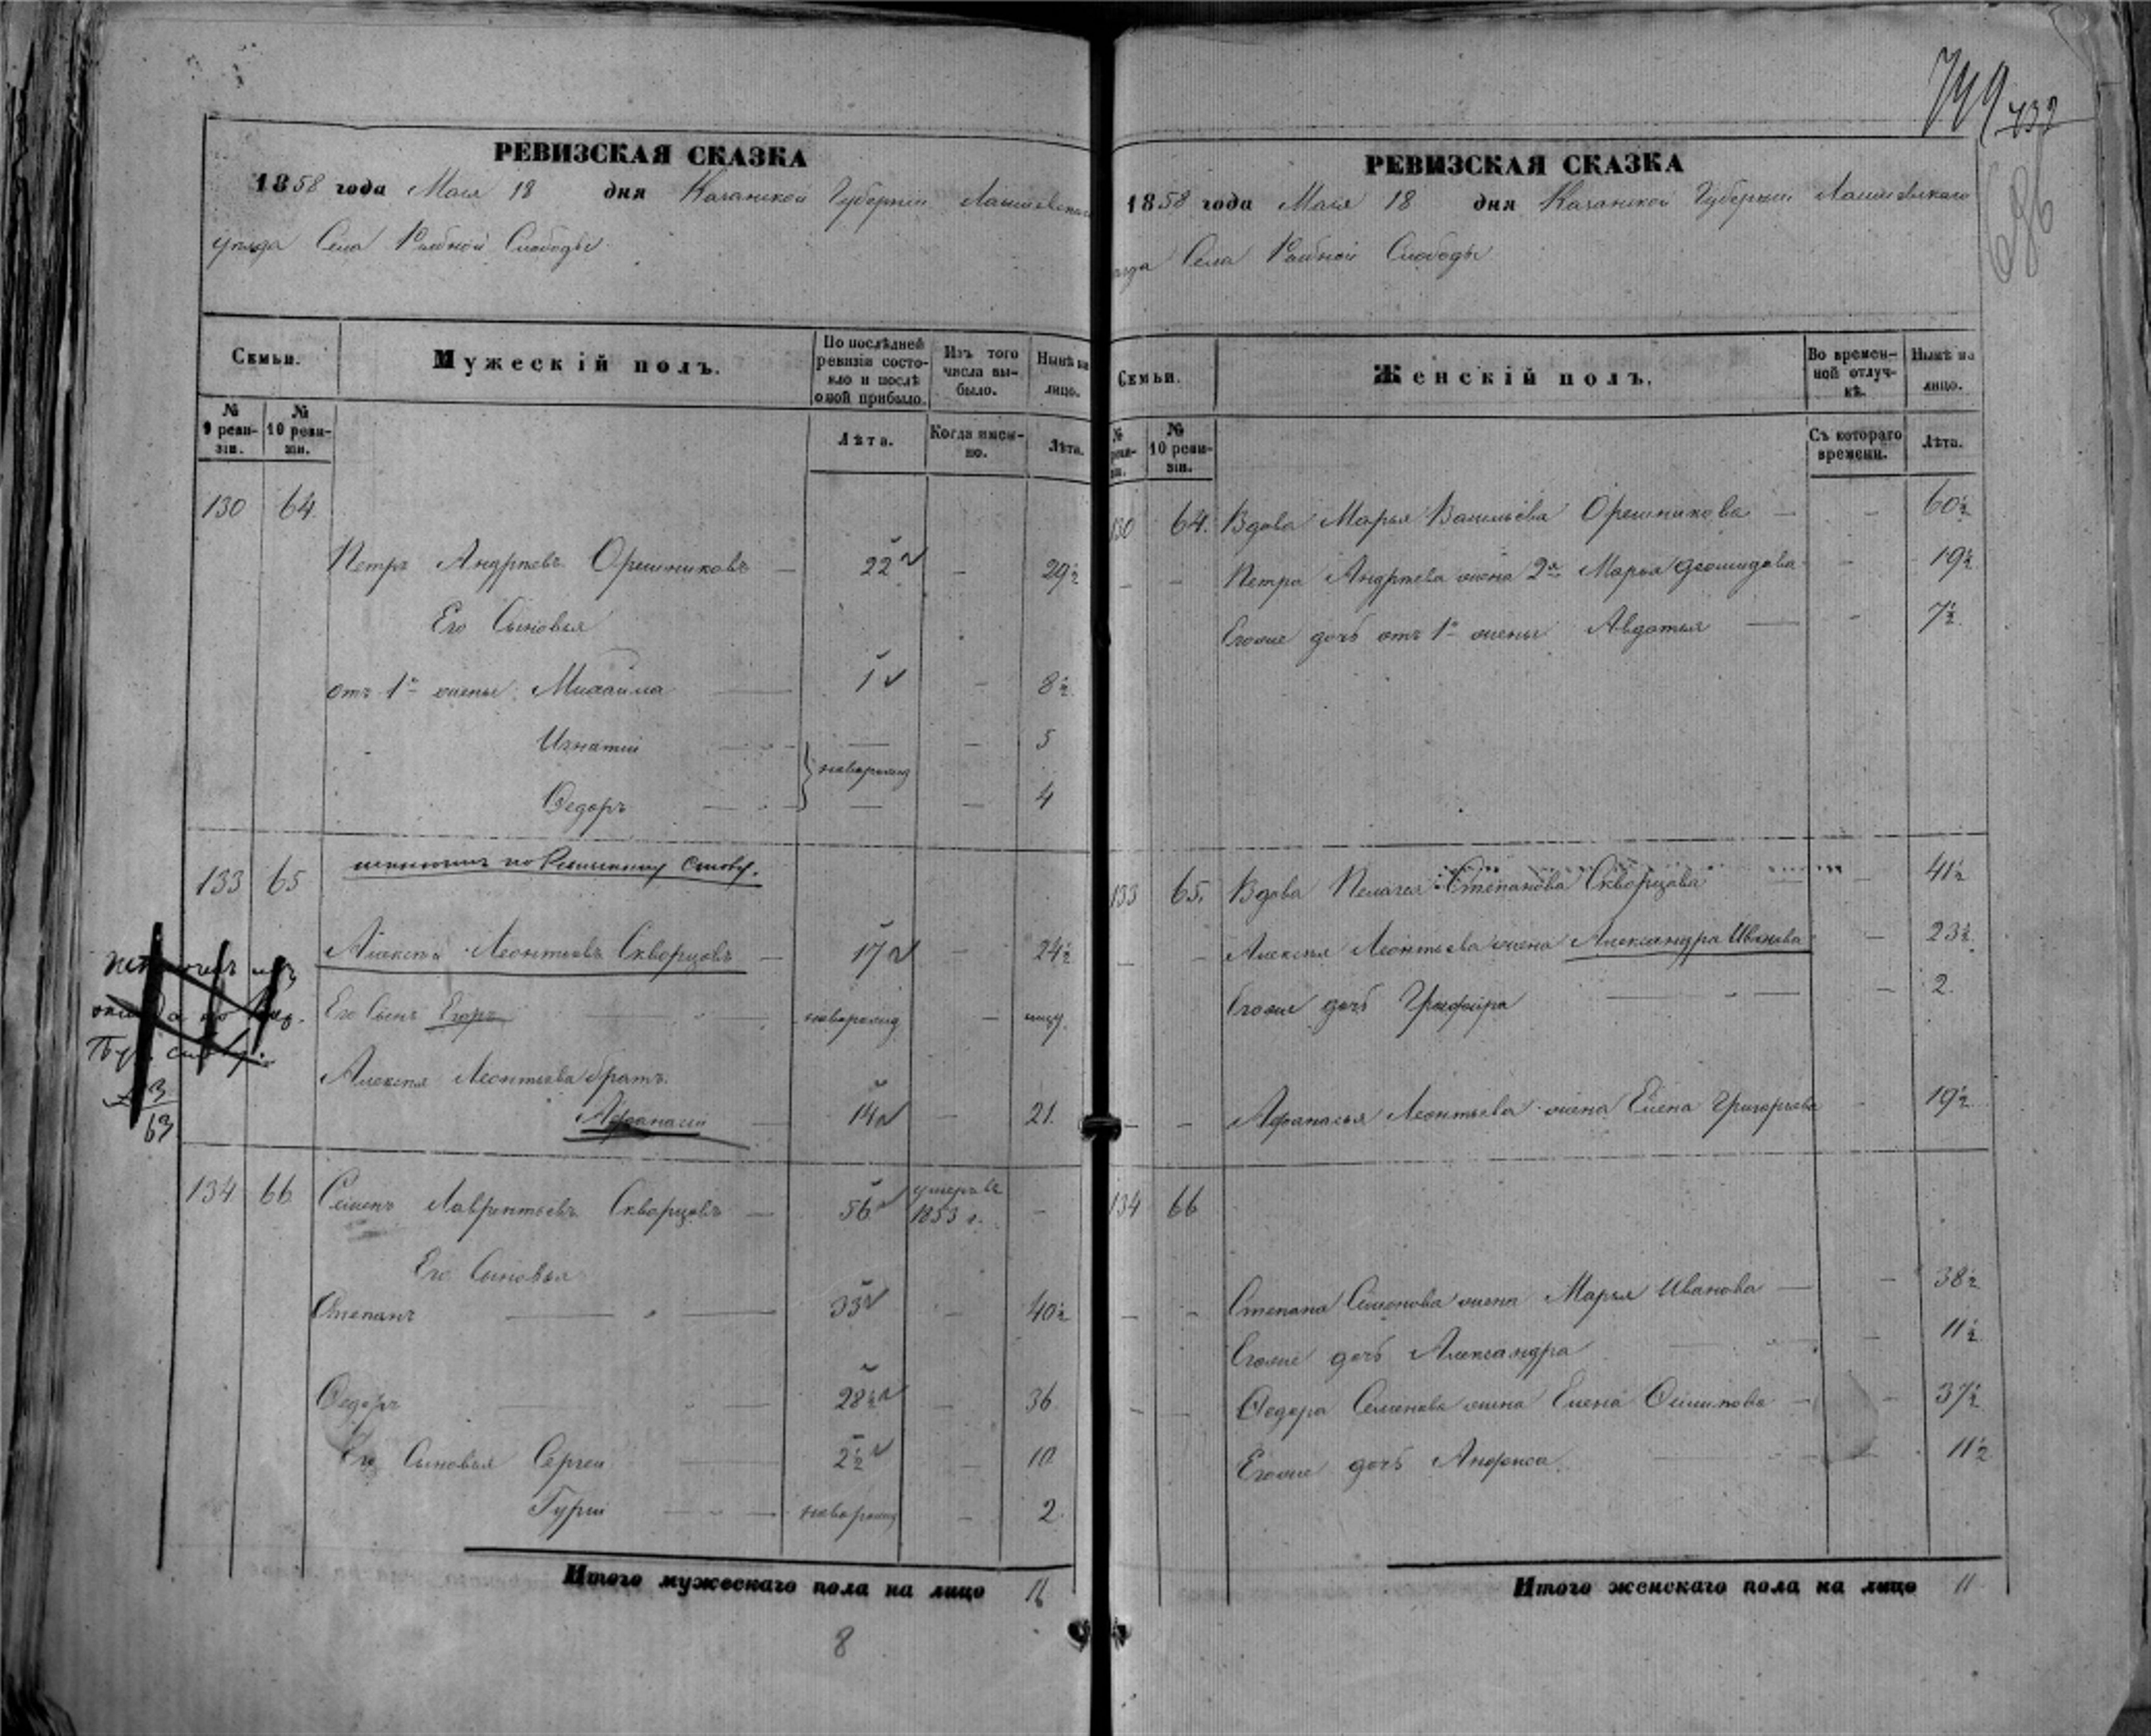 РЕВИЗСКАЯ СКАЗКА
1858 года Мая 18 дня Казанской Губернии Лаишевскаго
уѣзда Села Рыбной Слободы
Семьи.
Мужескій полъ.
По послѣдней ревизіи состояло и послѣ оной прибыло.
Изъ того числа выбыло.
Нынѣ на лицо.
№ 9 ревизіи.
№ 10 ревизіи.
Лѣта.
Когда именно.
Лѣта.
130 64.
Петръ Андреевъ Орешниковъ — 22 — 29½
Его Сыновья
отъ 1й жены Михайла — 1 — 8½
Игнатій — — — 5
новорожд
Федоръ — — — 4
133 65
Алексей Леонтьевъ Скворцовъ — 17 — 24½
Его Сынъ Егоръ — новорожд —
Алексея Леонтьева братъ
Афанасій — 14 — 21.
3
63
134 66 Семенъ Лаврентьевъ Скворцовъ — 56 умеръ въ 1853 г. —
Его Сыновья
Степанъ — 33 — 40½
Федоръ — 28½ — 36
Его Сыновья Сергей — 2½ — 10
Гурій — новорожд — 2
Итого мужескаго пола на лицо 11
8
749 432
686
РЕВИЗСКАЯ СКАЗКА
1858 года Мая 18 дня Казанской Губерніи Лаишевскаго
езда Села Рыбной Слободы
Семьи.
Женскій полъ.
Во временной отлучкѣ.
Нынѣ на лицо.
№ реви-зіи.
№ 10 ревизіи.
Съ котораго времени.
Лѣта.
130 64. Вдова Марья Васильева Орешникова — — 60½
Петра Андреева жена 2я Марья — 19½
Егоже дочь отъ 1й жены Авдотья — — 7½
133 65. Вдова Пелагея Степанова Скворцова — 41½
Алексея Леонтьева жена Александра Иванова — 23½
Егоже дочь Глафира — — 2.
Афанасья Леонтьева жена Елена Григорьева 19½
134 66
Степана Семенова жена Марья Иванова — — 38½
Егоже дочь Александра — 11½
Федора Семенова жена Елена Осипова — — 37½
Егоже дочь Анфиса 11½
Итого женскаго пола на лицо 11